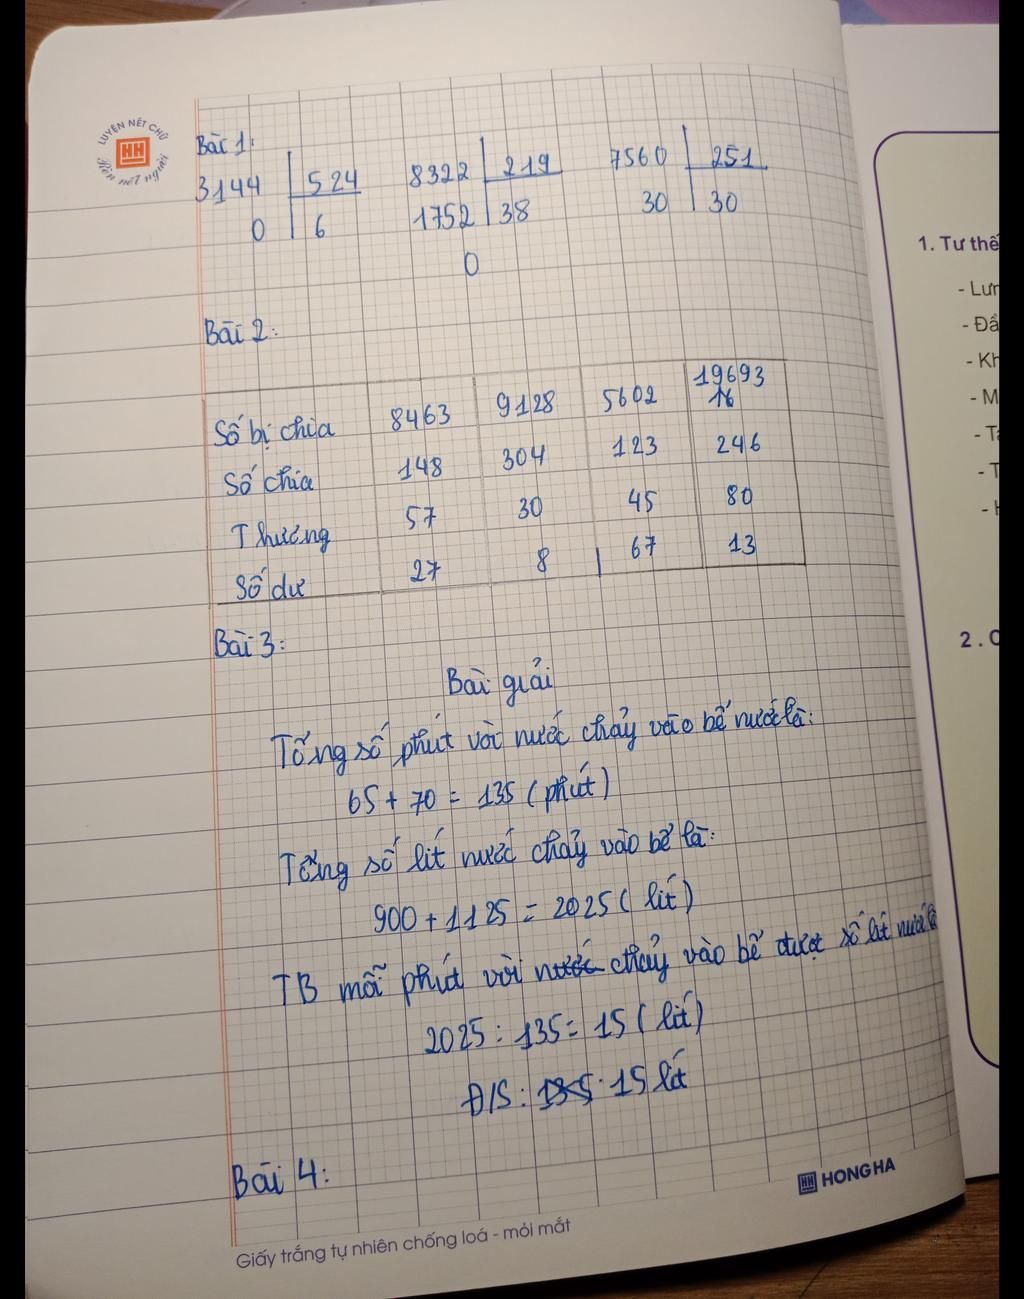 LUYỆN NÉT CHỮ
HH
Rèn nết người
Bài 1:
3144 524 8322 219 7560 251
0 6 1752 38 30 30
0
Bài 2:
Số bị chia 8463 9128 5602 19693
16
Số chia 148 304 123 246
Thương 57 30 45 80
Số dư 27 8 67 13
Bài 3:
Bài giải
Tổng số phút vòi nước chảy vào bể nước là:
65 + 70 = 135 (phút)
Tổng số lít nước chảy vào bể là:
900 + 1125 = 2025 (lít)
TB mỗi phút vòi nước chảy vào bể được số lít nước là
2025 : 135 = 15 (lít)
Đ/S: 135 . 15 lít
Bài 4:
HH HONG HA
Giấy trắng tự nhiên chống loá - mỏi mắt
1. Tư thế
- Lưn
- Đầ
- Kh
- M
- T
- T
2. C